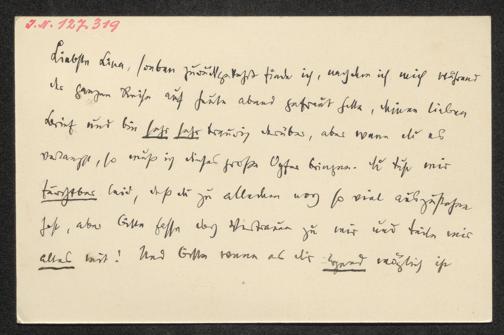 I.N. 127.319
Liebste Lina, soeben zurückgekehrt finde ich, nachdem ich mich während
der ganzen Reise auf heute abend gefreut hatte, deinen lieben
Brief und bin sehr sehr traurig darüber, aber wenn du es
verlangst, so muß ich dieses große Opfer bringen. Du tust mir
furchtbar leid, daß du zu alledem noch so viel auszustehen
hast, aber bitte fasse doch Vertrauen zu mir und teile mir
alles mit! Und bitte wenn es dir irgend möglich ist